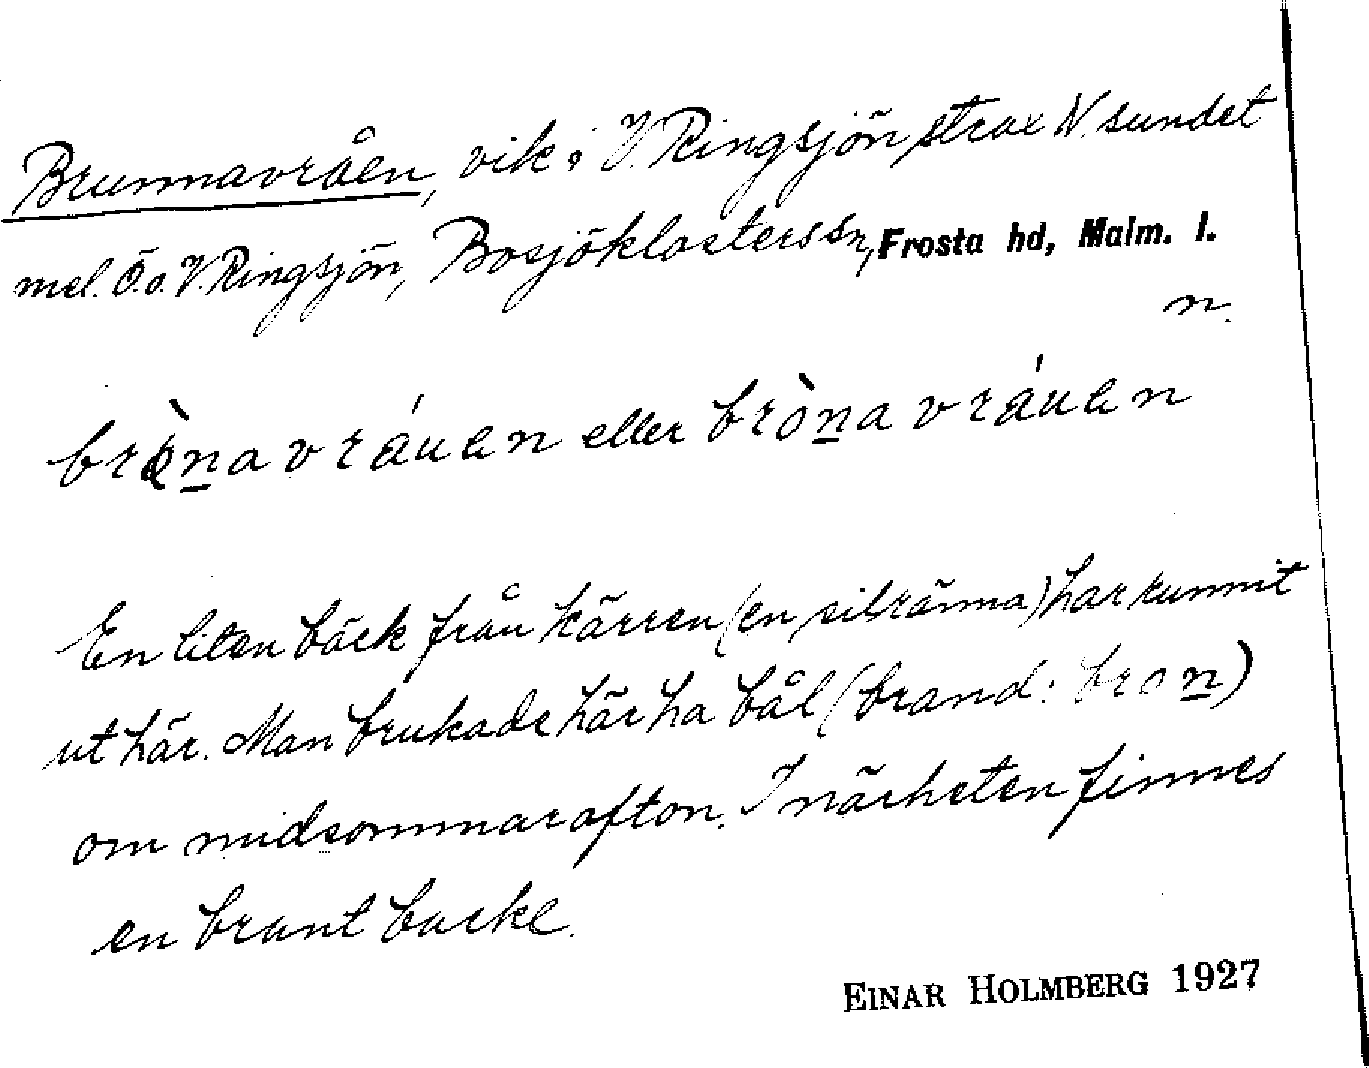 Brunnavråen, vik i V. Ringsjön strax N. sundet
mel. Ö. o. V. Ringsjön, Bosjöklosters sn, Frosta hd, Malm. l.
n.
brèn̲avráuen eller bròn̲avráuen
En liten bäck från kärren (en silränna) har runnit
ut här. Man brukade här ha bål (brand: bron̲)
om midsommarafton. I närheten finnes
en brant backe.
EINAR HOLMBERG 1927